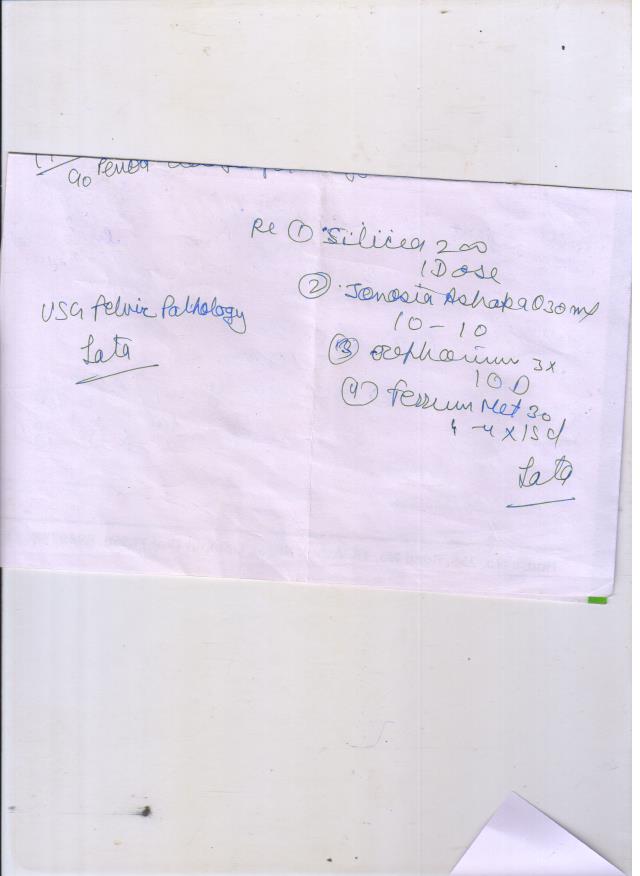 90 Period
Rx ① Silicea 200
1 Dose
② Janosia Ashoka Q 30 ml
10 - 10
③ 3x
10 D
④ Ferrum Met 30
4 - 4 x 15 d
Lata
USG Pelvic Pathology
Lata